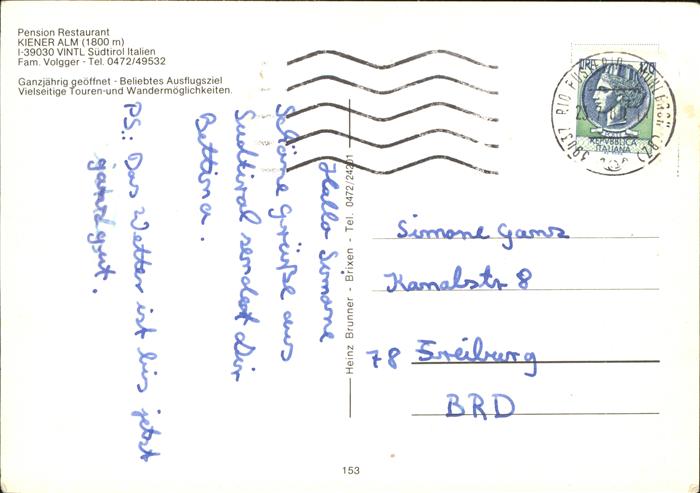 Pension Restaurant
KIENER ALM (1800 m)
I-39030 VINTL Südtirol Italien
Fam. Volgger - Tel. 0472/49532
Ganzjährig geöffnet - Beliebtes Ausflugsziel
Vielseitige Touren-und Wandermöglichkeiten.
Hallo Simone
Schöne Grüße aus
Südtirol sendet Dir
Bettina.
PS.: Das Wetter ist bis jetzt
ganz gut.
Heinz Brunner - Brixen - Tel. 0472/24201
39037 RIO PUSTERIA
REPVBBLICA
ITALIANA
Simone Gans
Kanalstr 8
78 Freiburg
BRD
153